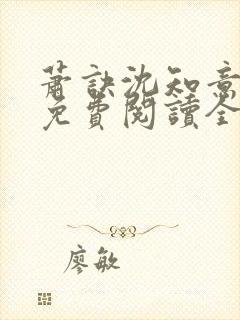 蕭訣沈知意
免費閱讀全
廖敏